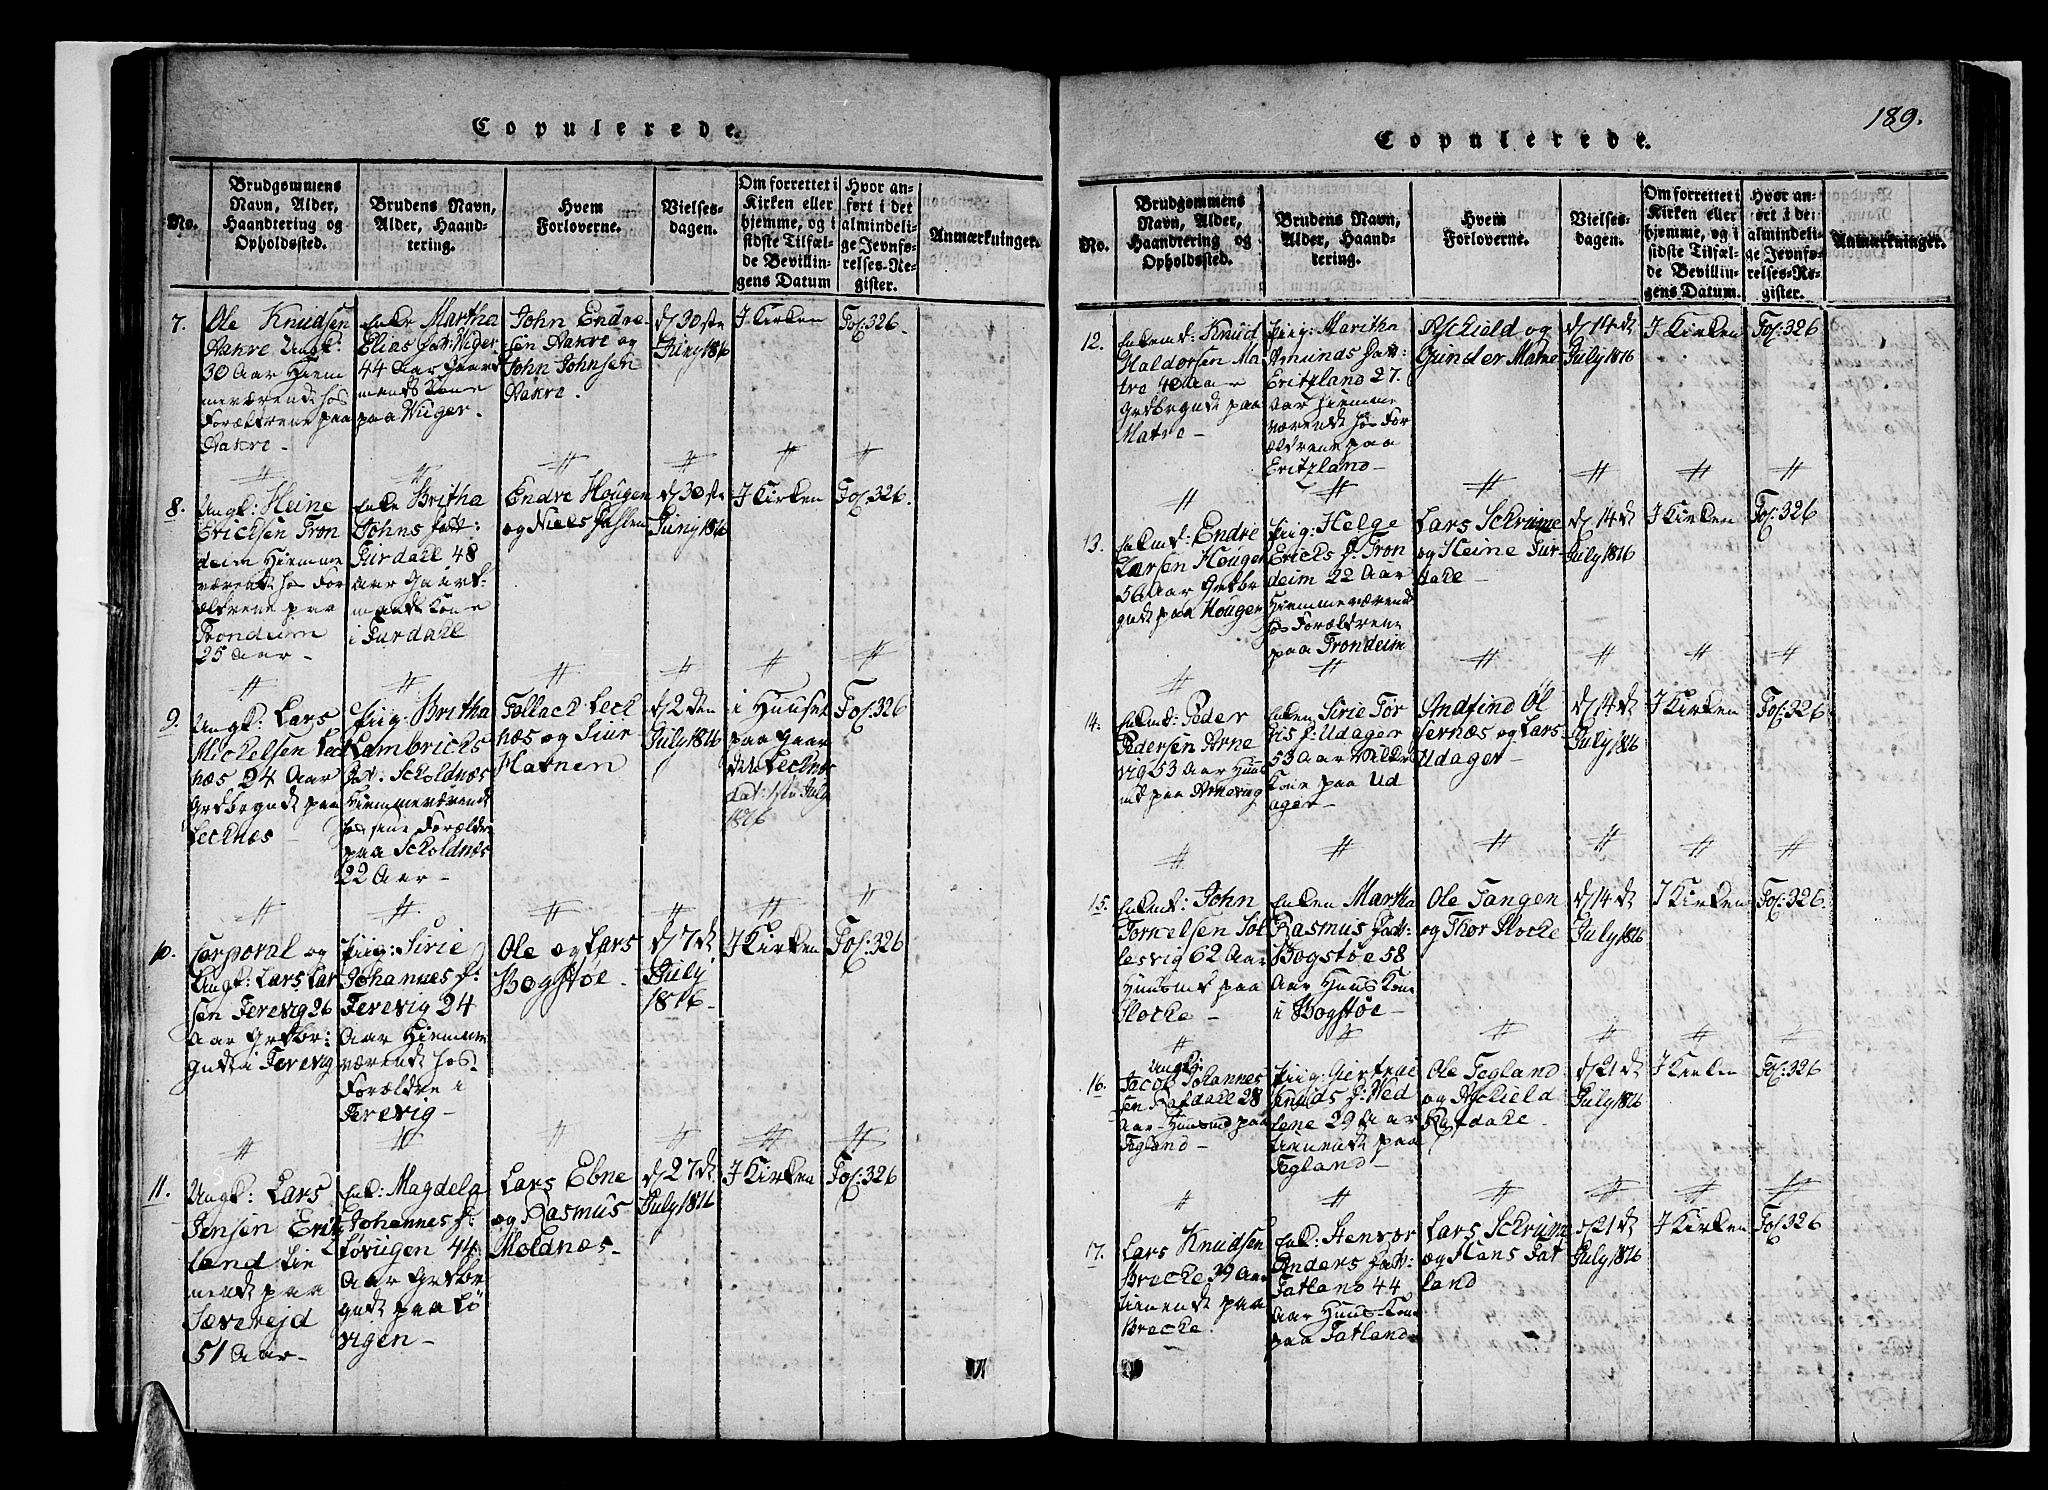 Copulerede.
No.
Brudgommens
Navn, Alder,
Haandtering og
Opholdssted.
Brudens Navn,
Alder, Haand-
tering.
Hvem
Forloverne.
Vielses-
dagen.
Om forrettet i
Kirken eller
hjemme, og i
sidste Tilfæl-
de Bevillin-
gens Datum
Hvor an-
ført i det
almindeli-
ge Jevnfø-
relses-Re-
gister.
Anmærkninger.
7.
Ole Knudsen
Aakre Ungk:
30 Aar Hiem
meværende hos
Forældrene paa
Aakre
Enke Martha
Elias Dat: Viger
44 Aar Gaard
mands Kone
paa Viger.
John Endre
sen Aakre og
John Johnsen
Aakre.
d 30ste
Juny 1816
I Kirken
Fol. 326.
8.
Ungk: Heine
Ericksen Tron
deim Hiemme
værende hos For
ældrene paa
Trondeim
25 Aar
Enke Britha
Johns Dat:
Furdahl 48
Aar Gaard-
mands Kone
i Furdahl
Endre Hougen
og Niels
d 30ste
Juny 1816
I Kirken
Fol. 326.
9.
Ungk: Lars
Mickelsen Leck
næs 24 Aar
Grdbrgnde paa
Lecknes
Piig: Britha
Lambrichs
Dat. Scholdnæs
Hiemmeværende
hos sine Forældre
paa Scholdnæs
22 Aar
Tollach Leck
næs og Siur
Hatnem
d 2den
July 1816
i Huuset
paa Gaar
den Lecknæs
dat: 1ste July
1816
Fol. 326
10.
Corporal og
Ungk: Lars Lar
sen Terevig 26
Aar Grdbr:
gnde i Terevig
Piig: Sirie
Johannes D:
Terevig 24
Aar Hiemme
værende hos
Forældre i
Terevig
Ole og Lars
Bogstøe.
d 7d
July
1816
I Kirken
Fol. 326
11.
Ungk: Lars
Jensen Eritz
land tie
nende paa
Sæverejd
51 Aar
Enk: Magdela
Johannes D:
Løvigen 44
Aar Grdbr
gnde paa Lø
vigen
Lars Ebne
og Rasmus
Moldnæs
d 27d
July 1816
I Kirken
Fol. 326
189.
Copulerede.
No.
Brudgommens
Navn, Alder,
Haandtering og
Opholdssted.
Brudens Navn,
Alder, Haand-
tering.
Hvem
Forloverne.
Vielses-
dagen.
Om forrettet i
Kirken eller
hjemme, og i
sidste Tilfæl-
de Bevillin-
gens Datum.
Hvor an-
ført i det
almindeli-
ge Jevnfø-
relses-Re-
gister.
Anmærkninger.
12.
Enkemd: Knud
Haldorsen Ma
tre 40 Aar
Grdbrgnde paa
Matre
Piig: Maritha
Amunds Dat:
Eritzland 27.
Aar Hiemme
værende hos For
ældrene paa
Eritzland
Aschield og
Gunder Matre
d 14d
July 1816
I Kirken
Fol. 326
13.
Enkmd: Endre
Larsen Hougen
56 Aar Grdbr
gnde paa Hougen
Piig: Helge
Ericks D: Tron
deim 22 Aar
Hiemmeværende
hos Forældrene
paa Trondeim
Lars Schrume
og Heine Fur
dahl
d 14d
July 1816
I Kirken
Fol. 326
14.
Enkmd: Peder
Pedersen Arne
vig 53 Aar Huus
md paa Arnevig
Enken Sirie Tor
gis D: Udager
53 Aar
Kone paa Ud
ager
Andfind Øl
vernæs og Lars
Udager
d 14d
July 1816
I Kirken
Fol. 326
15.
Enkmd: John
Tornelsen Sol
lesvig 62 Aar
Huusmd paa
Flocke
Enken Martha
Rasmus Dat:
Bogstøe 58
Aar Huus Kone
i Bogstøe
Ole Tangen
og Thor Flocke
d 14d
July 1816
I Kirken
Fol. 326.
16.
Ungk:
Jacob Johannes
sen Rafdahl 28
Aar Huusmd paa
Tegland
Piig: Giertrue
Knuds D: Ved
lene 29 Aar
tienende paa
Tegland
Ole Tegland
og Aschield
Rafdahl
d 21d
July 1816
I Kirken
Fol. 326
17.
Lars Knudsen
Brecke 39 Aar
tienende paa
Brecke.
Enk: Stenvor
Anders Dat:
Fatland 44
Aar Huus Kone
paa Fatland
Lars Schrume
og Hans Fat
land
d 21d
July 1816
I Kirken
Fol. 326